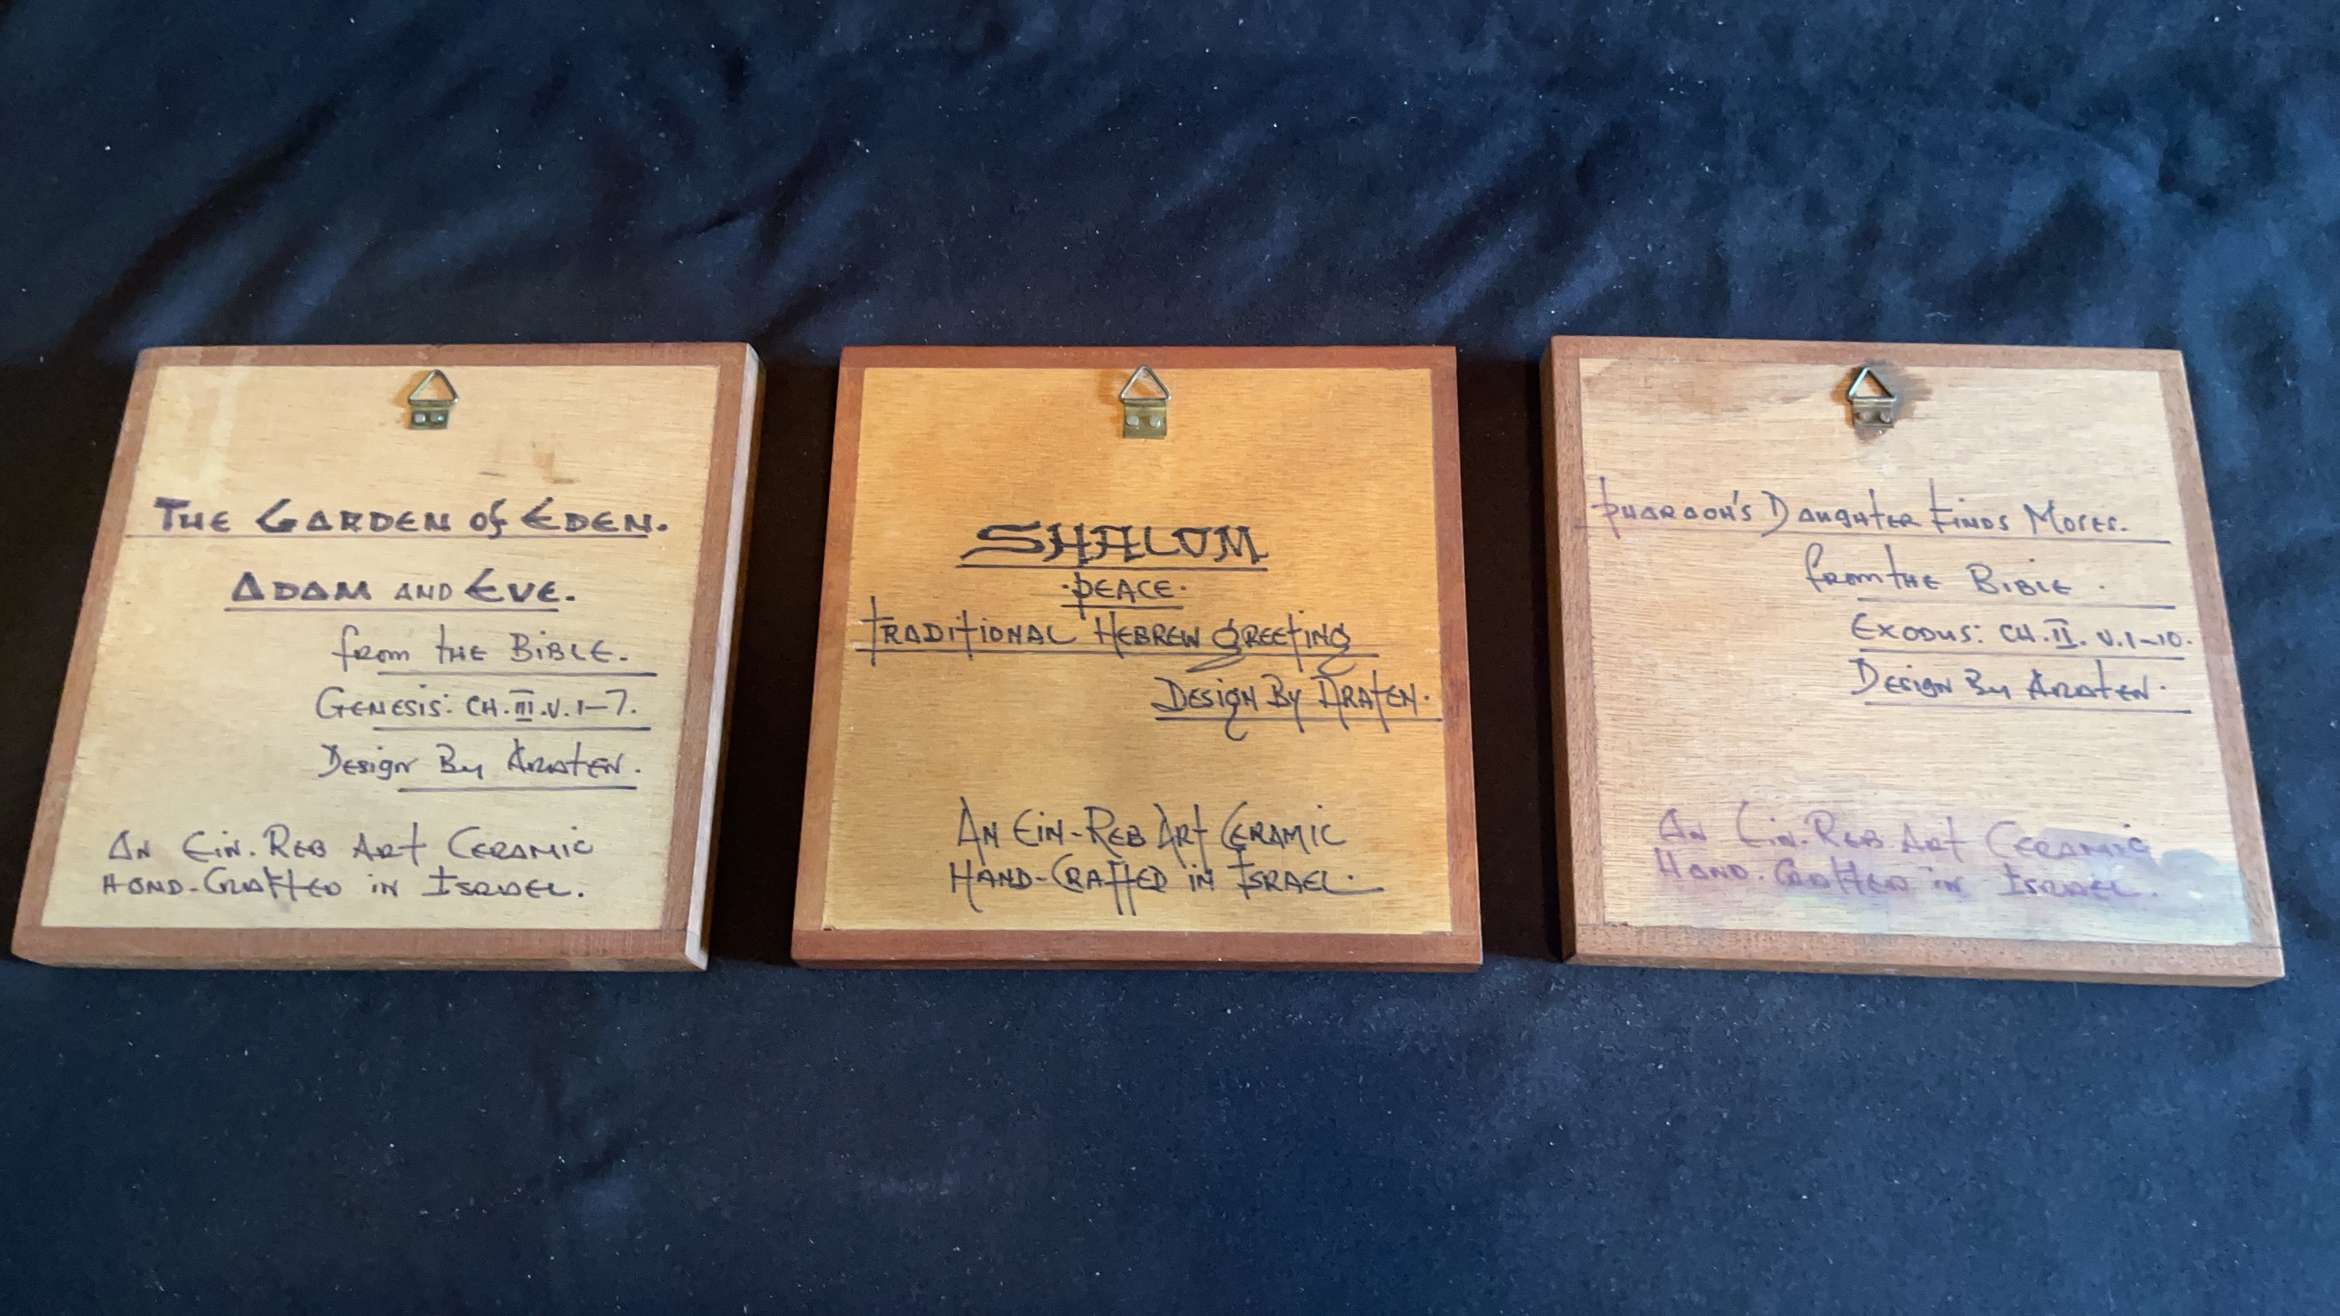 THE GARDEN of EDEN.
ADAM AND EVE.
from the BIBLE.
GENESIS: CH.III.V.1-7.
DESIGN By ARATEN.
AN EIN-REB ART CERAMIC
HAND-CRAFTED IN ISRAEL.
SHALOM
·PEACE·
TRADITIONAL HEBREW GREETING
DESIGN By ARATEN.
AN EIN-REB ART CERAMIC
HAND-CRAFTED IN ISRAEL.
PHARAOH'S DAUGHTER FINDS MOSES.
from the BIBLE.
EXODUS: CH.II. V.1-10.
DESIGN By ARATEN.
AN EIN-REB ART CERAMIC
HAND-CRAFTED IN ISRAEL.